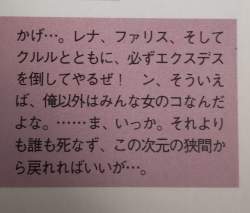 かげ…。レナ、ファリス、そして
クルルとともに、必ずエクスデス
を倒してやるぜ！　ン、そういえ
ば、俺以外はみんな女のコなんだ
よな。……ま、いっか。それより
も誰も死なず、この次元の狭間か
ら戻れればいいが…。